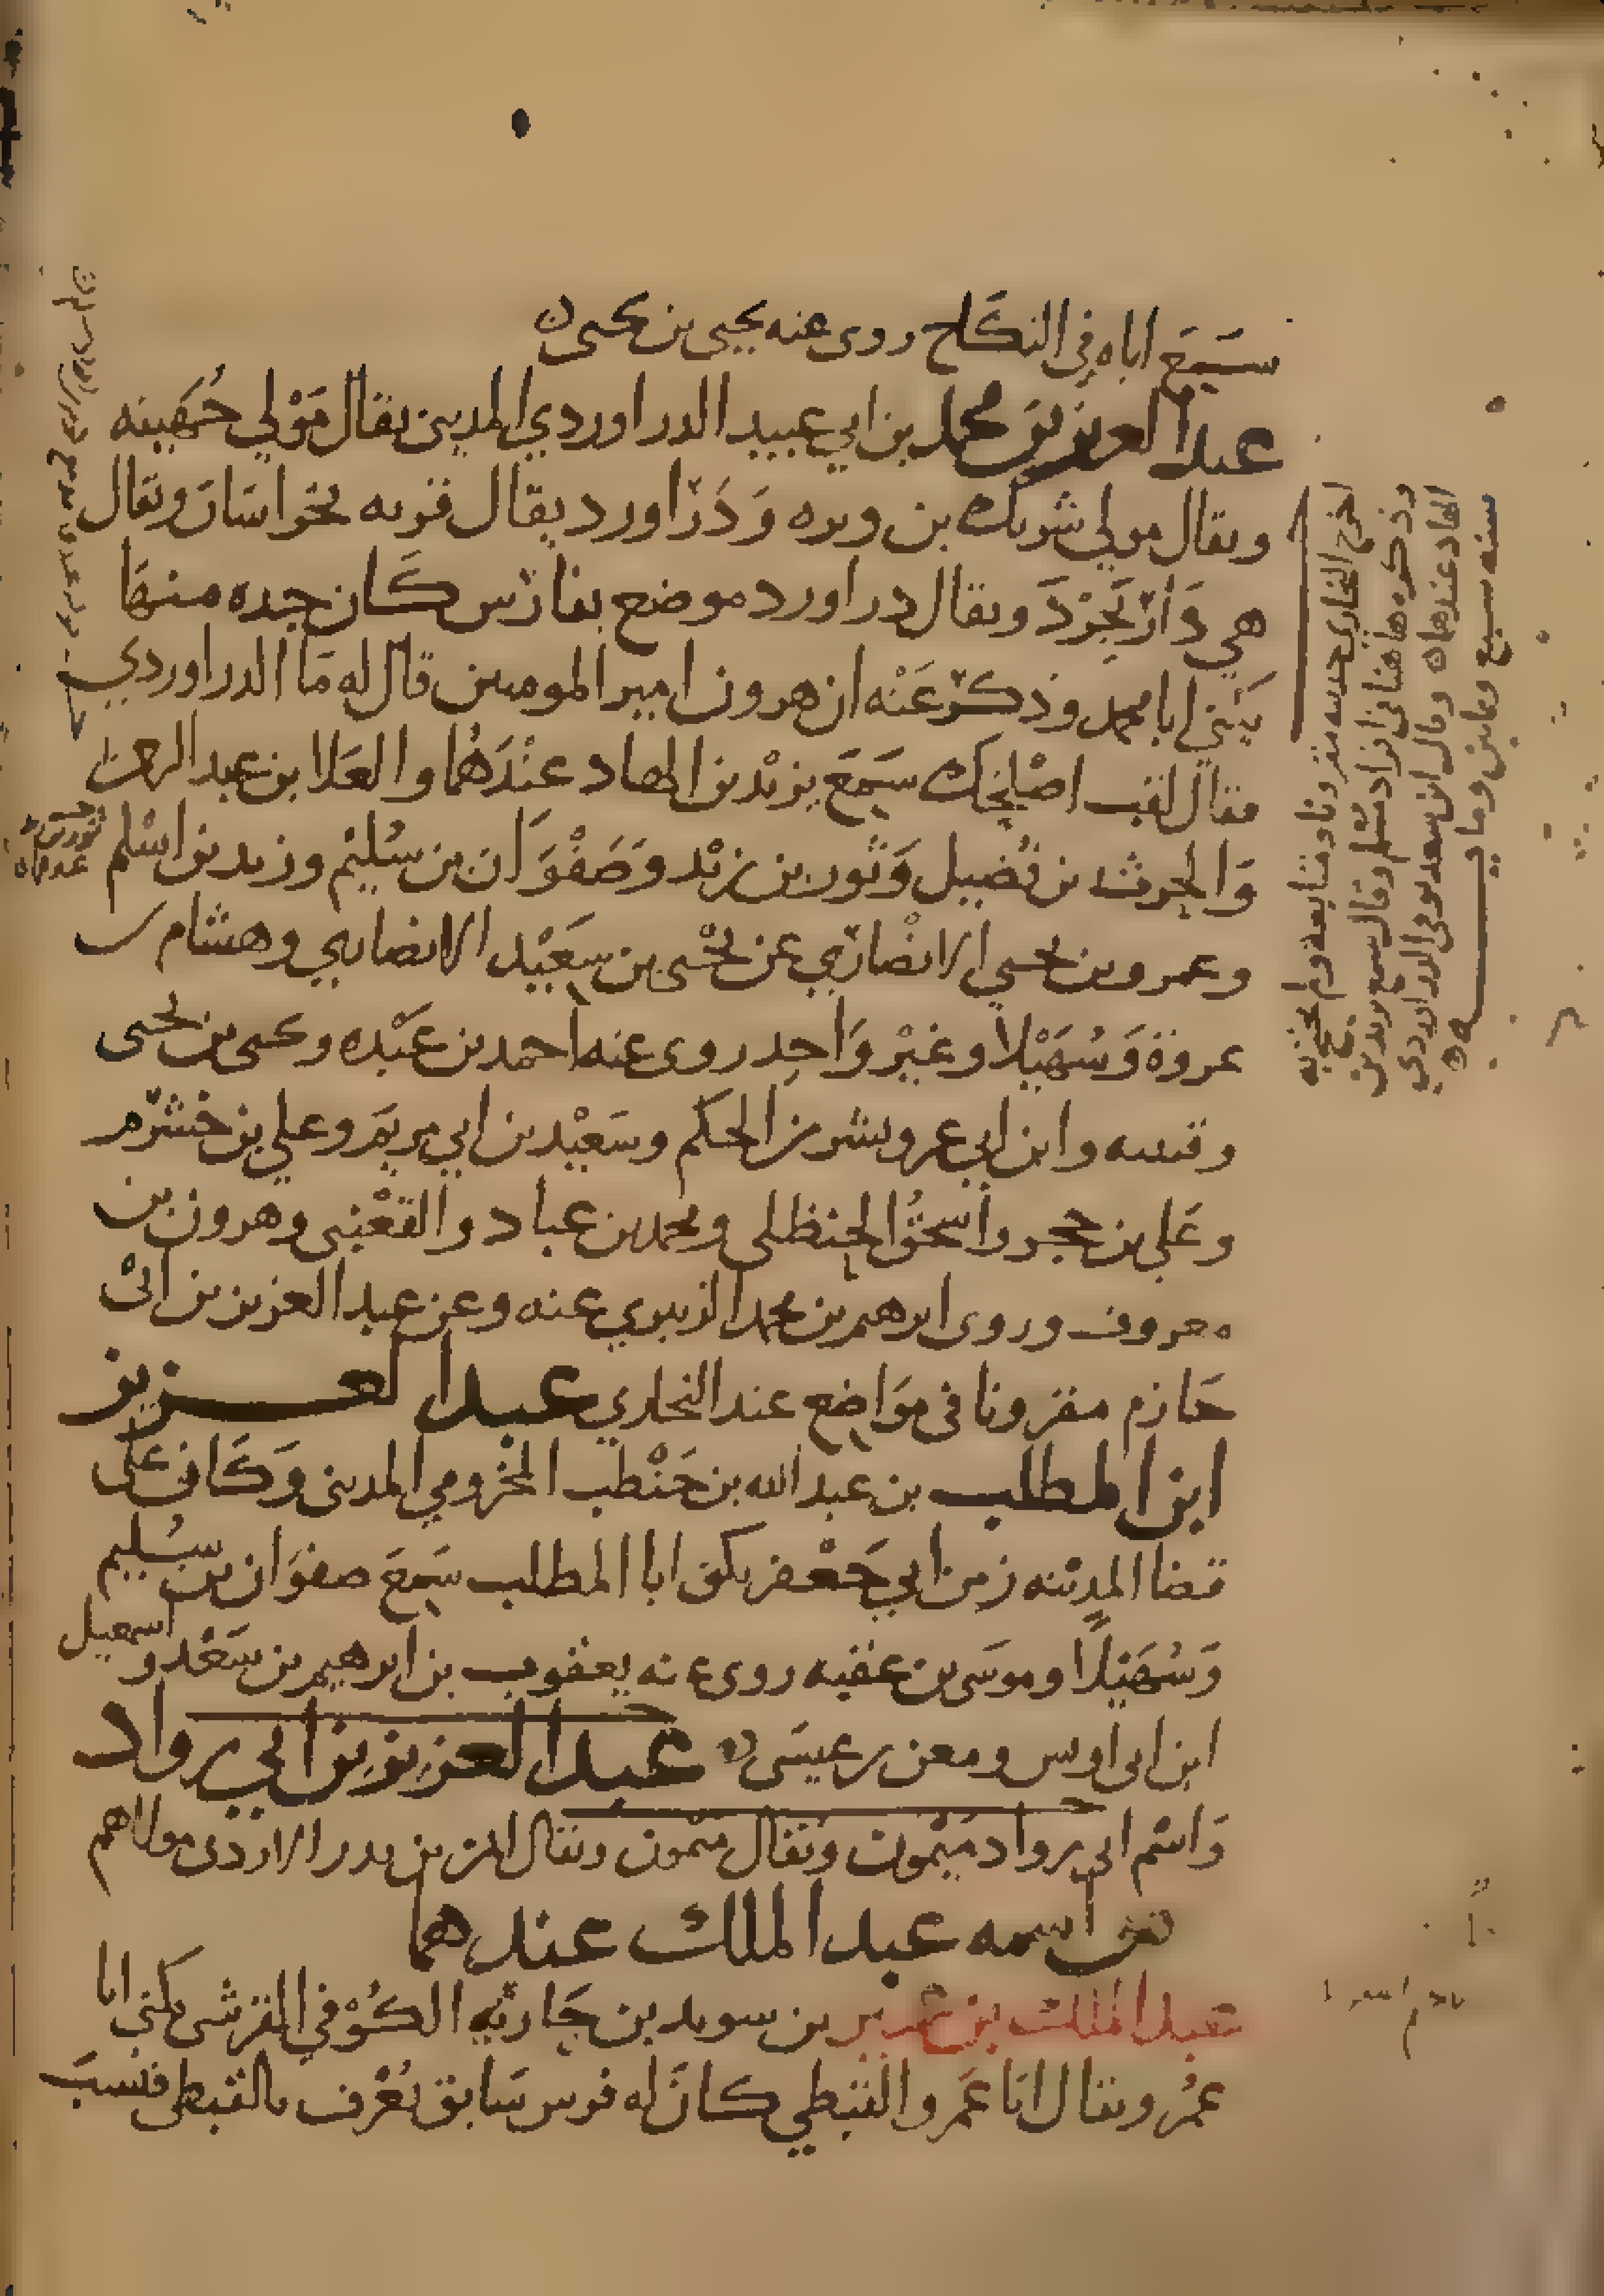 سَمِعَ اباه في النكَاح روى عنه يحيى بن يحيى
عبد العزيز بن محمد بن ابي عبيد الدراوردي المديني يقال مَوْلي جُهَينه
ويقال مولي شريك بن وبره وَدَرَاورد يقال قريه بخراسَان ويقال
هي دَارَبجِرْدَ ويقال دراورد موضع بفارس كَان جده منهَا
يكني ابا محمد وذكر عَنْه ان هرون امير المومنين قال له مَا الدراوردي
فقال لقب اصْلحك سَمِعَ يزيْد بن الهاد عنْدَهُمَا والعَلا بن عبد الرحمن
وَالحرث بن فُضيل وَثور بن زيْد وَصَفْوَان بن سُليْم وزيد بن اسْلم
وعمرو بن يحيى الانصَاري عن يحْيى بن سَعيْد الانصاري وهشام بن
عروة وَسُهَيْلا وغيْر وَاحِد روى عنه احمد بن عَبْده ويحيى بن يحيى
وقتيبه وابن ابي عمر وبشر بن الحكم وسَعيْد بن ابي مريَم وعلي بن خشرَم
وعَلي بن حجر وَاسْحقُ الحنظلي ومحمد بن عباد والقعْنبي وهرون بن
معروف وروى ابرهيم بن محمد الزبيري عنه وعن عبد العزيز بن ابيْ
حَازم مقرونا في موَاضِع عند البخاري عبد العزيز
ابن المطلب بن عبد الله بن حَنْطب المخْزومي المدينى وَكَان عَلى
قضا المديْنه زمن ابي جَعْفر يكنى ابا المطلب سَمِعَ صفوَان بن سُليم
وَسُهَيْلًا وموسَى بن عقبه روى عنه يعقوب بن ابرهيم بن سَعْد واسمعيل
ابن ابى اويس ومعن بن عيسَى عبد العزيز بن ابي رواد
وَاسْم ابي رواد مَيْمون وَيُقَال ميْمون ويقال ايمن بن بدر الازدى مولاهم
من اسمه عبد الملك عندهما
عبد الملك بن عمير بن سويد بن جَاريَه الكُوْفي القرشى يكني ابا
عمُر ويقال ابَا عَمرو القبْطي كَانَ له فرس سَابق يُعْرف بالقبطي فنُسبَ
اخرج البخاري حديثه مقرونا ومتابعه ولم يحتج به
وذكره هاهنا في افراد مسْلم وقال سمع يزيد بن
الهاد عندهما وقال ابن سعد توفي الدراوردي
سنه سبع وثمانين ومايه